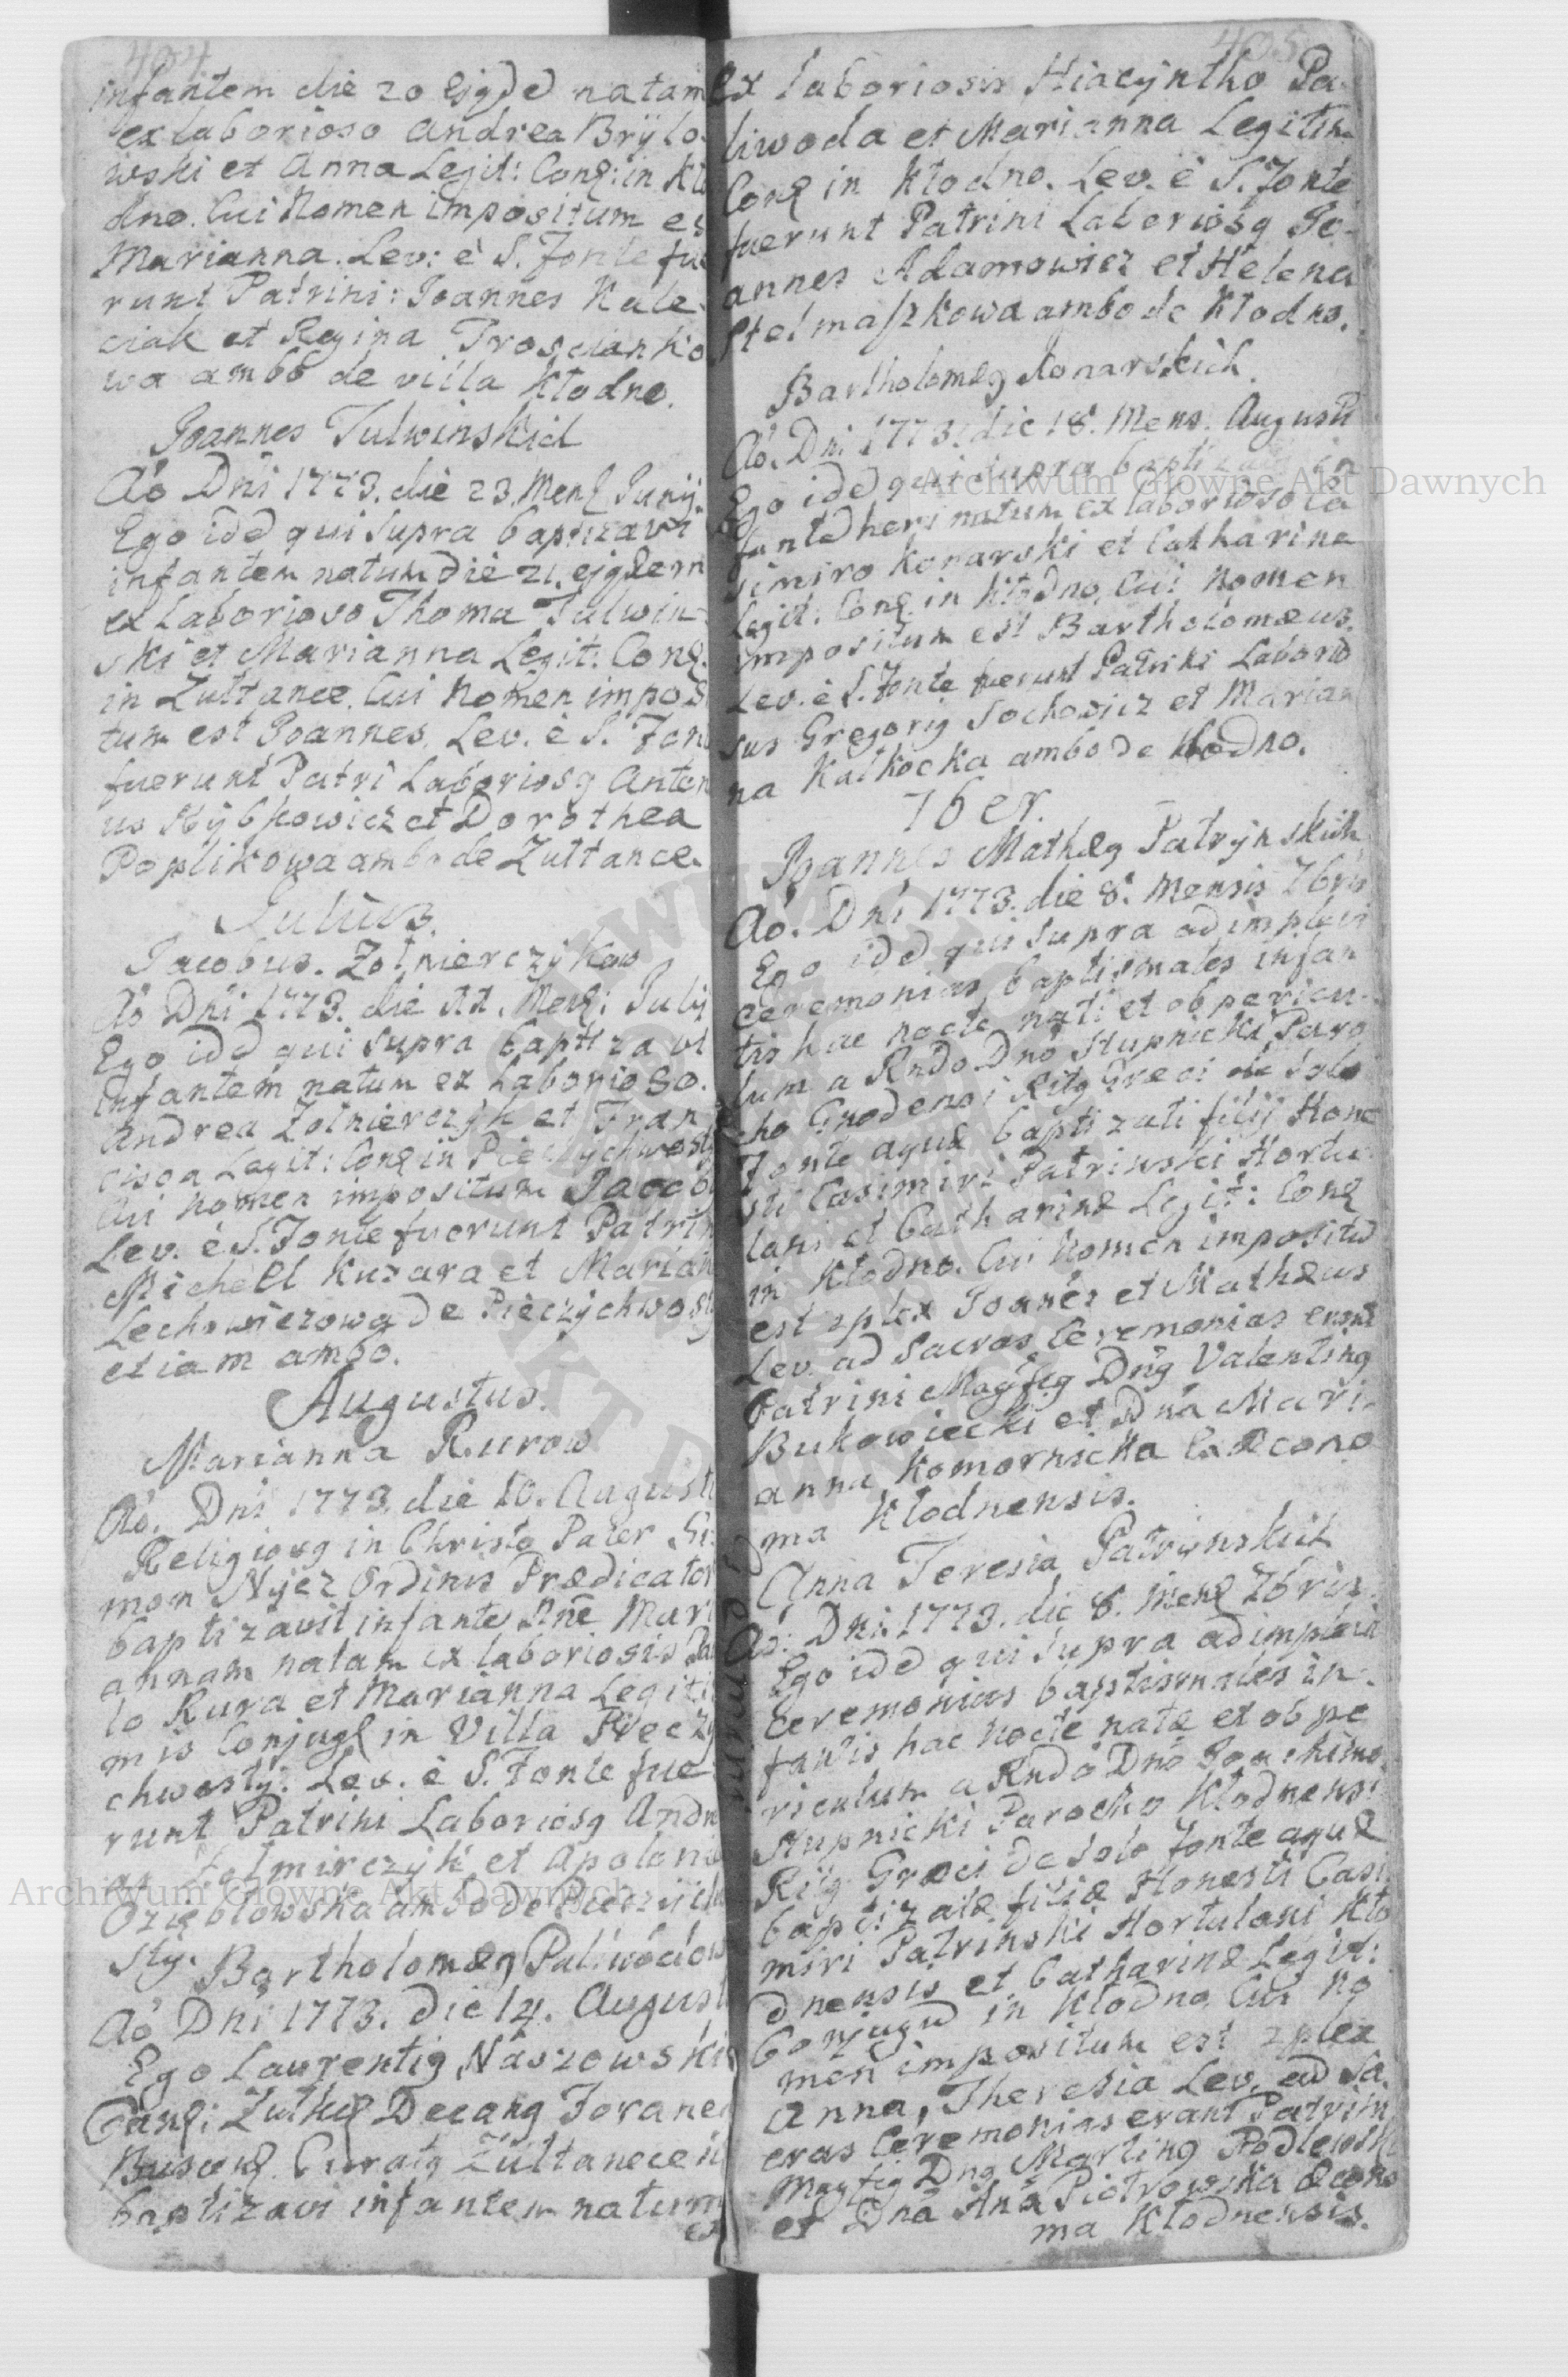 404
infantem die 20 Ejgdd natam
ex laborioso Andrea Brylo-
wski et Anna Legit: Conq: in Kło
dno. Cui Nomen impositum es
Marianna. Lev: è S. Fonte fue
runt Patrini: Joannes Kule-
ciak et Regina Prosciank o
wa ambo de villa Kłodno.
Joannes Tulwinskich
Aô Dni 1773. die 23. Mens Junij
Ego idd qui supra baptizavi
infantem natum die 21. ejgdem
ex Laborioso Thoma Tulwin-
ski et Marianna Legit: Conq.
in Zułtance. Cui Nomen impos
tum est Joannes. Lev. è S. Fon
fuerunt Patri Laboriosg Anton
us Rybkowicz et Dorothea
Poplikowa ambo de Zułtance.
Julius.
Jacobus. Zołnierczykow
Aô Dni 1773. die 22. Mens: Julij
Ego idd qui supra baptizavi
infantem natum ex Laborioso.
Andrea Zolnierczyk et Fran
cisca Legit: Conq in Pieczychwosty
Cui nomen impositum Jacob
Lev. è S. Fonte fuerunt Patrin
Michaell Kuzara et Marian
Lechowiczowa de Pieczychwosty
etiam ambo.
Augustus.
Marianna Rurow
Aô. Dni 1773. die 10. Augusti
Religiosg in Christo Pater Si
mon Nycz Ordinis Prædicator
baptizavit infante Nnê Mari
annam natam ex laboriosis Pau
lo Rura et Marianna Legiti
mis Conjugq in Villa Pieczy
chwosty: Lev. è S. Fonte fue
runt Patrini Laboriosg Andre
as Zołnirczyk et Apoloni
Ozięblowska ambo de Pieczych
sty.
Bartholomæg Paliwodow
Aô Dni 1773. die 14. Augusti
Ego Laurentig Naszowski
Canq: Zułkq Decang Foraneg
Buscnq. Curatg Zułtanecen
baptizavi infantem natum
ex
405
Ex laboriosis Hiacyntho Pa
liwoda et Marianna Legitim
Conq in Kłodno. Lev. è S. Fonte
fuerunt Patrini Laboriosg Jo-
annes Adamowicz et Helena
Stelmaszkowa ambo de Kłodno.
Bartholomæg Konarskich.
Aô. Dni 1773. die 18. Mens. Augusti
Ego idd qui supra baptizavi in
fantd heri natum ex laborioso Ca
simiro Konarski et Catharina
Legit: Conq. in Kłodno, Cui Nomen
impositum est Bartholomæus.
Lev. è S. Fonte fuerunt Patrini Laborio
sus Gregorig Sochowicz et Marian
na Kałkocka ambo de Kłodno.
7ber.
Joannes Mathæg Patrynskich
Aô. Dni 1773. die 8. Mensis 7bris
Ego idd qui supra adimplevi
ceremonias baptismales infan
tis hac nocte nati et ob pericu-
lum a Rndo Dno Stupnicki Paro
cho Gnodensi Ritg Græci de solo
Fonte aquæ baptizati filij Hone
sti Casimiri Patrinski Hortu
lani et Catharinæ Legit: Conq
in Kłodno. Cui Nomen impositd
est 2plex Joanês et Mathæus
Lev. ad Sacras Ceremonias erant
Patrini Magfig Dng Valenting
Bukowiecki et Dna Mari-
anna Komornicka Ex Œcono
ma Kłodnensis.
Anna Teresia Patrynskich
Aô: Dni 1773. die 8. Mens 7bris.
Ego idd qui supra adimplevi
Ceremonias baptismales in-
fantis hac Nocte natæ et ob pe
riculum a Rndo Dno Joachimo
Stupnicki Parocho Kłodnensi
Ritg Græci de solo fonte aquæ
baptizatæ filiæ Honesti Casi
miri Patrinski Hortulani Kło
dnensis et Catharinæ Legit:
Conjugd in Kłodno Cui No
men impositum est 2plex
Anna, Theresia Lev. ad Sa
cras Ceremonias erant Patrini
Magfig Dng Marting Podlewski
et Dna Anâ Piotrowska Œcono
ma Kłodnensis.
Archiwum Główne Akt Dawnych
Archiwum Główne Akt Dawnych